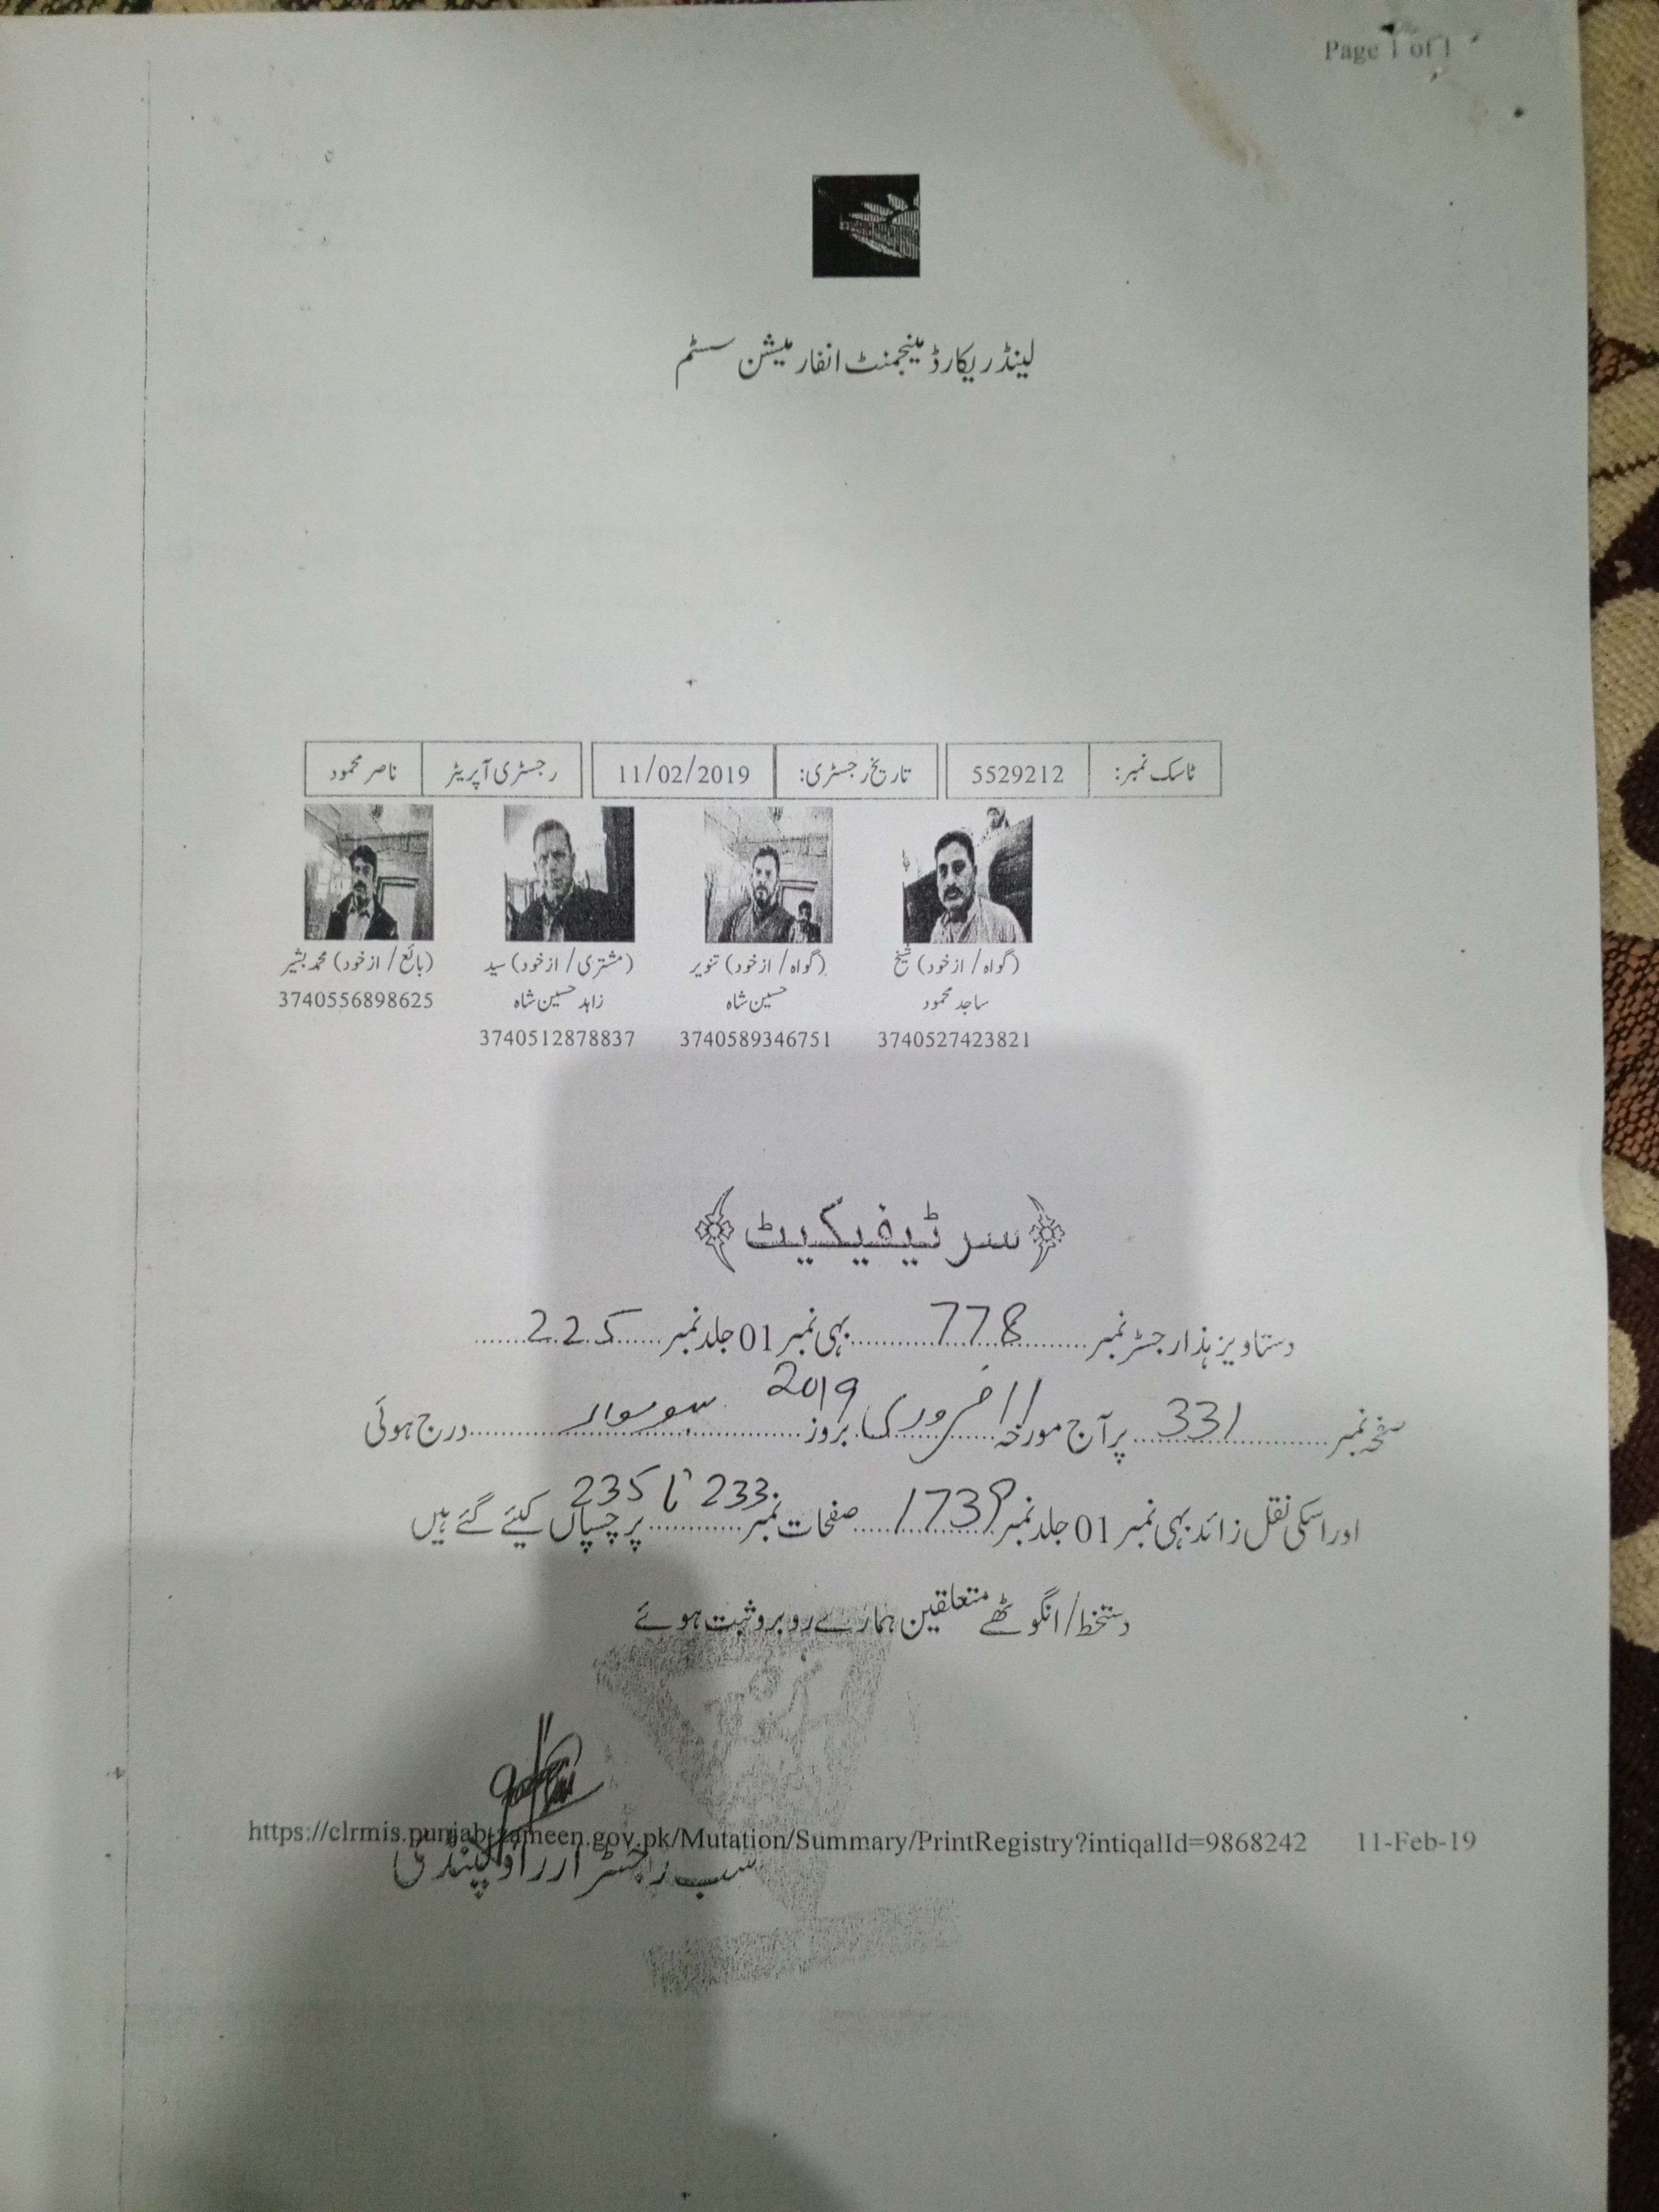 Page 1 of 1
لینڈ ریکارڈ مینجمنٹ انفارمیشن سسٹم
ٹاسک نمبر: 5529212 تاریخ رجسٹری: 11/02/2019 رجسٹری آپریٹر ناصر محمود
(گواہ / از خود) شیخ ساجد محمود
3740527423821
(گواہ / از خود) تنویر حسین شاہ
3740589346751
(مشتری / از خود) سید زاہد حسین شاہ
3740512878837
(بائع / از خود) محمد بشیر
3740556898625
﴿سرٹیفیکیٹ﴾
دستاویز ہذا رجسٹر نمبر 778 بہی نمبر 01 جلد نمبر 225
صفحہ نمبر 331 پر آج مورخہ 11 فروری 2019 بروز سوموار درج ہوئی
اور اسکی نقل زائد بہی نمبر 01 جلد نمبر 1739 صفحات نمبر 233 تا 235 پر چسپاں کیئے گئے ہیں
دستخط/انگوٹھے متعلقین ہمارے روبرو ثبت ہوئے
https://clrmis.punjab-zameen.gov.pk/Mutation/Summary/PrintRegistry?intiqalId=9868242 11-Feb-19
سب رجسٹرار راولپنڈی